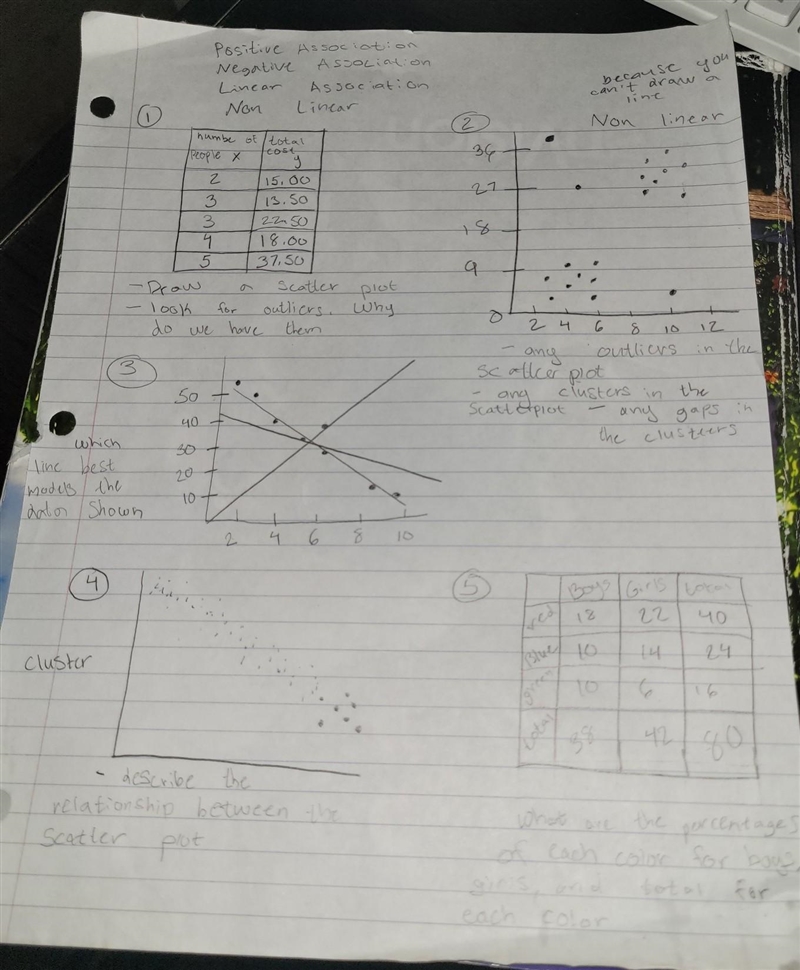 Positive Association
Negative Association
Linear Association
Non Linear
because you
can't draw a
line
Non linear
1
numbe of total
People x cost y
2 15.00
3 13.50
3 22.50
4 18.00
5 37.50
- Draw a scatter plot
- look for outliers. Why
do we have them
2
36
27
18
9
0
2 4 6 8 10 12
- any outliers in the
scatter plot
- any clusters in the
scatterplot - any gaps in
the clusters
3
50
40
30
20
10
2 4 6 8 10
which
line best
models the
data shown
4
cluster
- describe the
relationship between the
scatter plot
5
Boys Girls total
Red 18 22 40
Blue 10 14 24
green 10 6 16
total 38 42 80
what are the percentages
of each color for boys,
girls, and total for
each color